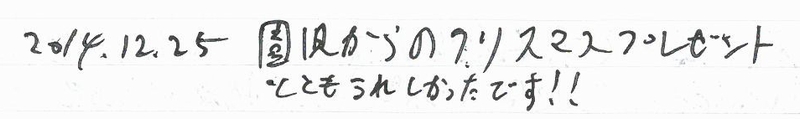 2014.12.25 園児からのクリスマスプレゼント
とてもうれしかったです!!